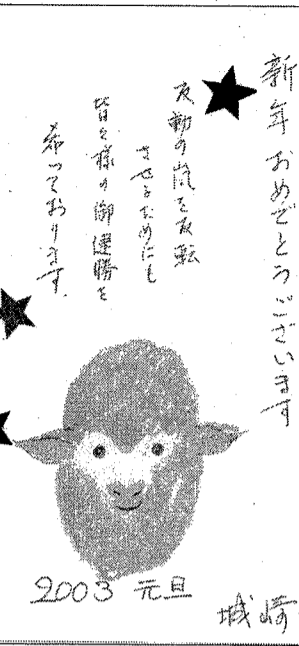 新年おめでとうございます
反動の嵐を反転
させるためにも
皆々様の御健勝を
希っております。
2003 元旦
城崎